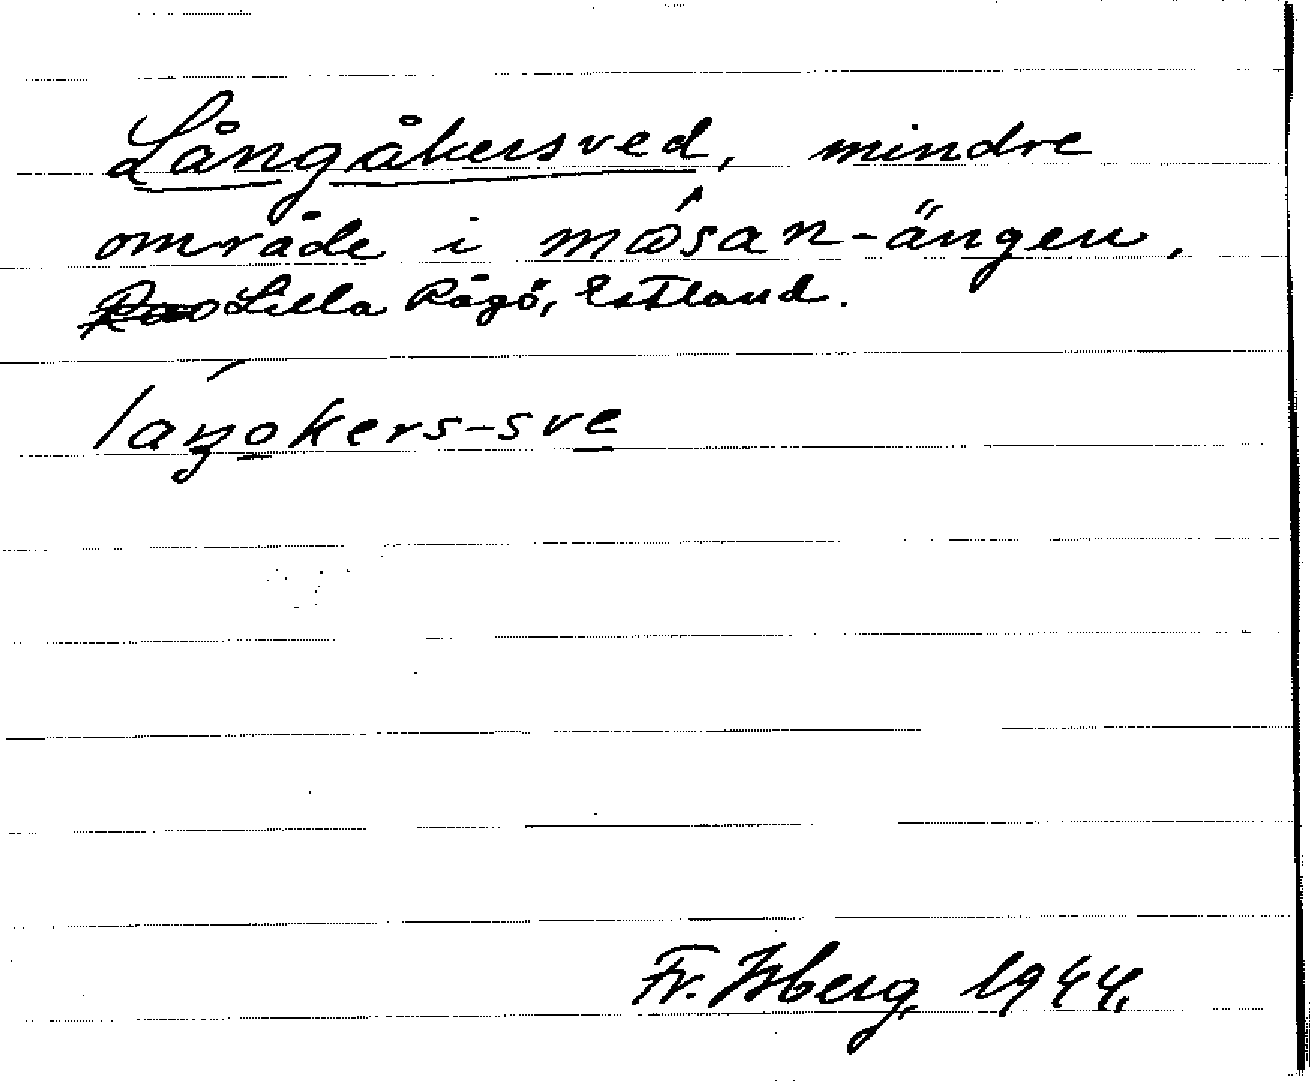 Långåkersved, mindre
område i mósan-ängen,
Lilla Rågö, Estland.
laŋo̲kers-sve̲
Fr. Isberg, 1944.